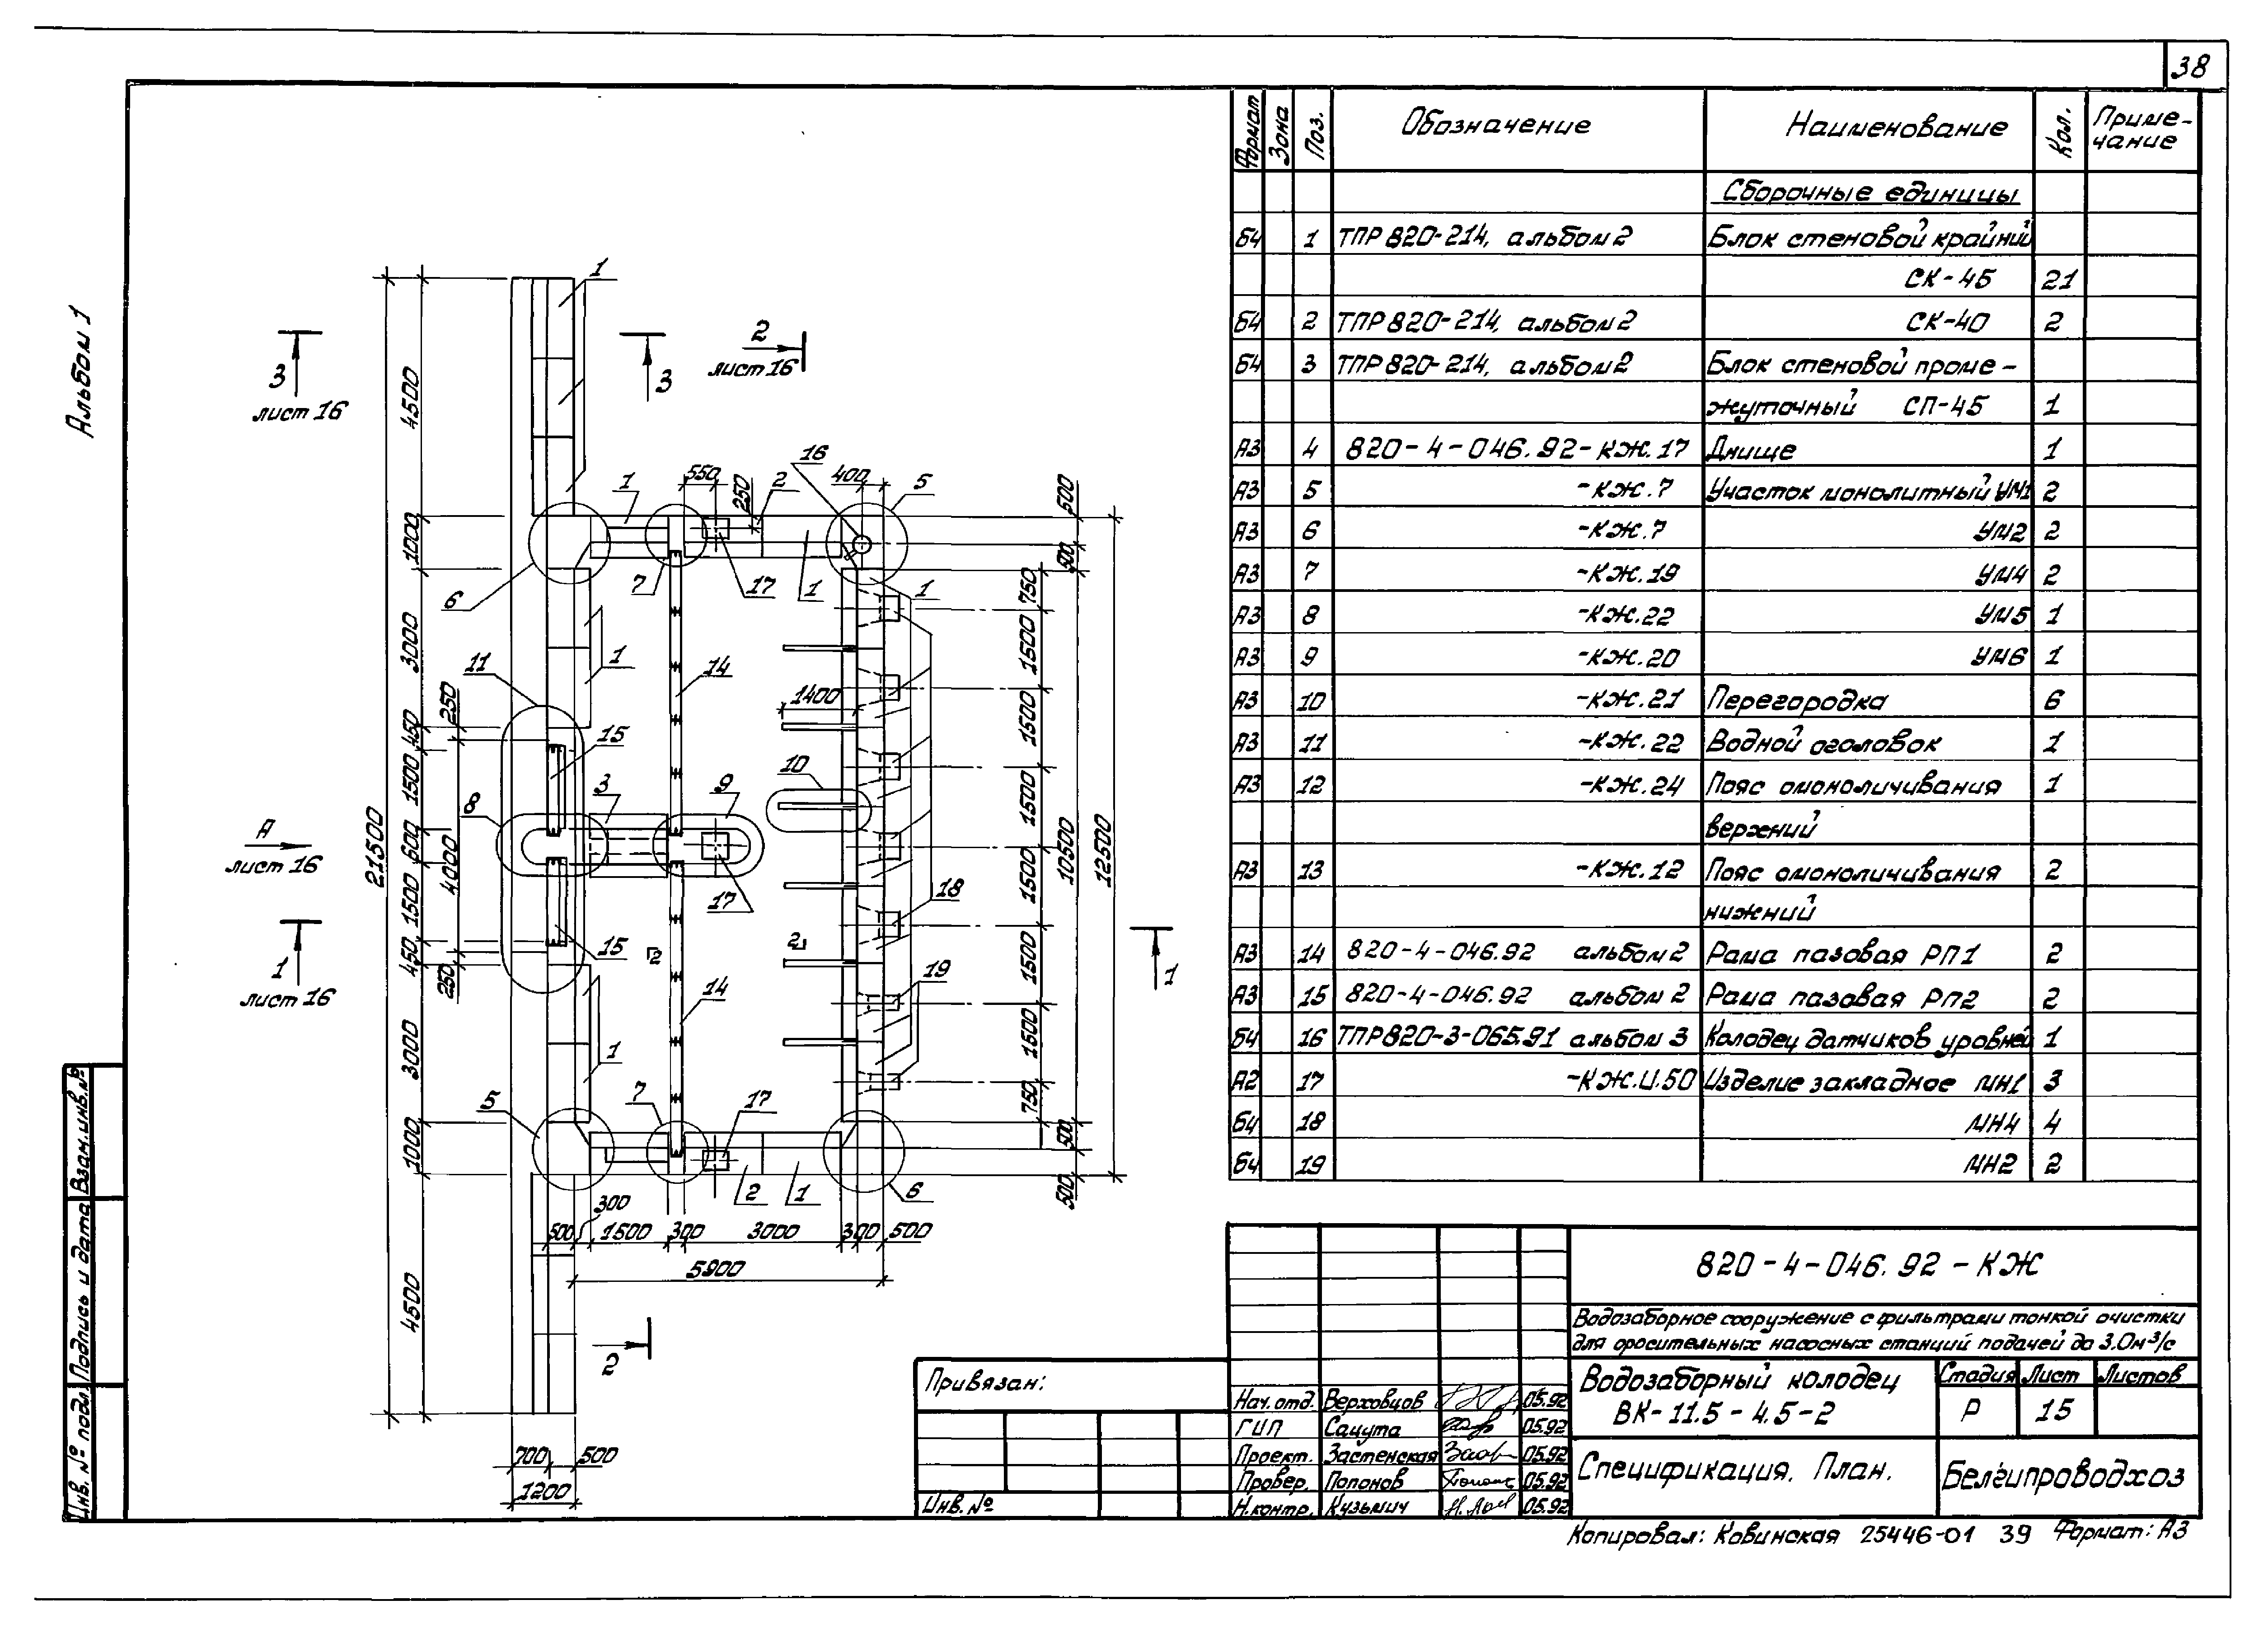 38
Альбом 1
Формат Зона Поз. Обозначение Наименование Кол. Приме-
чание
Сборочные единицы
Б4 1 ТПР 820-214, альбом 2 Блок стеновой крайний
СК-45 21
Б4 2 ТПР 820-214, альбом 2 СК-40 2
Б4 3 ТПР 820-214, альбом 2 Блок стеновой проме-
жуточный СП-45 1
А3 4 820-4-046.92-КЖ.17 Днище 1
А3 5 -КЖ.7 Участок монолитный УМ1 2
А3 6 -КЖ.7 УМ2 2
А3 7 -КЖ.19 УМ4 2
А3 8 -КЖ.22 УМ5 1
А3 9 -КЖ.20 УМ6 1
А3 10 -КЖ.21 Перегородка 6
А3 11 -КЖ.22 Водной оголовок 1
А3 12 -КЖ.24 Пояс омоноличивания 1
верхний
А3 13 -КЖ.12 Пояс омоноличивания 2
нижний
А3 14 820-4-046.92 альбом 2 Рама пазовая РП1 2
А3 15 820-4-046.92 альбом 2 Рама пазовая РП2 2
Б4 16 ТПР820-3-065.91 альбом 3 Колодец датчиков уровней 1
А2 17 -КЖ.И.50 Изделие закладное МН1 3
Б4 18 МН4 4
Б4 19 МН2 2
1
3
лист 16
3
2
лист 16
4500
16
550
250
2
400
5
500
1
1000
500
6
7
17
1
1
750
3000
1
11
14
1500
250
450
1400
1500
15
1500
10
1500
3
9
8
А
лист 16
21500
600
4000
10500
12500
1500
17
18
1500
15
2
2
450
250
1
лист 16
1500
19
1
14
1500
3000
1
750
5
7
17
1000
500
2
1
6
500
300
500
1500
300
3000
300
500
5900
4500
2
700
500
1200
820-4-046.92-КЖ
Водозаборное сооружение с фильтрами тонкой очистки
для оросительных насосных станций подачей до 3.0м³/с
Водозаборный колодец
ВК-11.5-4.5-2
Стадия Лист Листов
Р 15
Спецификация. План.
Белгипроводхоз
Привязан:
Инв. №
Нач. отд. Верховцов 05.92
ГИП Сацута 05.92
Проект. Застенская 05.92
Провер. Попонов 05.92
Н.контр. Кузьмич 05.92
Взам.инв.№
Подпись и дата
Инв. № подл.
Копировал: Ковинская 25446-01 39 Формат: А3